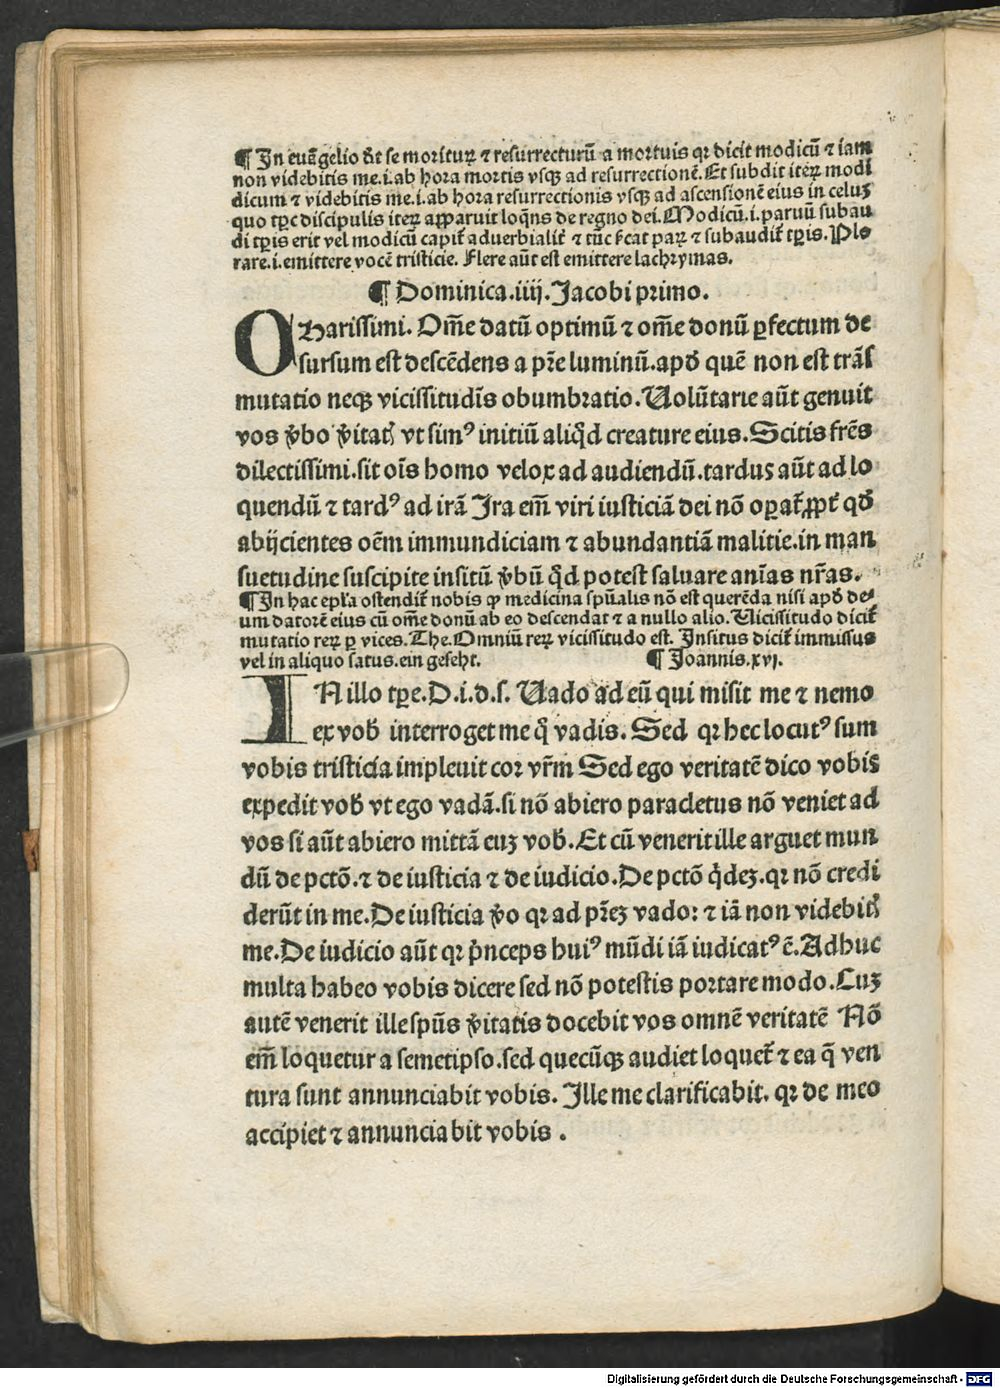 ¶ In euãgelio dt̃ se moriturꝫ ⁊ resurrecturũ a mortuis qꝛ dicit modicũ ⁊ iam
non videbitis me.i.ab hora mortis vsqꝫ ad resurrectionẽ. Et subdit iterꝫ modi
dicum ⁊ videbitis me.i.ab hora resurrectionis vsqꝫ ad ascensionẽ eius in celuꝫ
quo tꝑe discipulis iterꝫ apparuit loqñs de regno dei. Modicũ.i.paruũ subau
di tꝑis erit vel modicũ capit᷑ aduerbialit᷑ ⁊ tũc  ⁊ subaudit᷑ tꝑis. Plo
rare.i.emittere vocẽ tristicie. Flere aũt est emittere lachrymas.
¶ Dominica.iiij. Jacobi primo.
Oharissimi. Om̃e datũ optimũ ⁊ om̃e donũ ꝑfectum de
sursum est descẽdens a pr̃e luminũ.apd̓ quẽ non est trãs
mutatio neqꝫ vicissitudĩs obumbratio. Uolũtarie aũt genuit
vos v̓bo v̓itatꝭ vt simꝰ initiũ aliqd̓ creature eius. Scitis frẽs
dilectissimi.sit oĩs homo velox ad audiendũ.tardus aũt ad lo
quendũ ⁊ tardꝰ ad irã Ira em̃ viri iusticiã dei nõ oꝑat᷑ ꝓpt᷑ qd̓
abijcientes oẽm immundiciam ⁊ abundantiã malitie.in man
suetudine suscipite insitũ v̓bũ qd̓ potest saluare anĩas nr̃as.
¶ In hac epl̃a ostendit᷑ nobis ꝙ medicina spũalis nõ est querẽda nisi apd̓ de⸗
um datorẽ eius cũ om̃e donũ ab eo descendat ⁊ a nullo alio. Uicissitudo dicit᷑
mutatio rerꝫ ꝑ vices. The. Omniũ rerꝫ vicissitudo est. Insitus dicit᷑ immissus
vel in aliquo satus.ein geseht. ¶ Joannis.xvj.
IN illo tꝑe. D.i.d.s. Uado ad eũ qui misit me ⁊ nemo
ex vob̓ interroget me q̃ vadis. Sed qꝛ hec locutꝰ sum
vobis tristicia impleuit cor vr̃m Sed ego veritatẽ dico vobis
expedit vob̓ vt ego vadã.si nõ abiero paracletus nõ veniet ad
vos si aũt abiero mittã euꝫ vob̓. Et cũ venerit ille arguet mun
dũ de pctõ.⁊ de iusticia ⁊ de iudicio. De pctõ q̓deꝫ.qꝛ nõ credi
derũt in me. De iusticia v̓o qꝛ ad pr̃eꝫ vado: ⁊ iã non videbitꝭ
me. De iudicio aũt qꝛ p̓nceps huiꝰ mũdi iã iudicatꝰ ẽ. Adhuc
multa habeo vobis dicere sed nõ potestis portare modo. Cuꝫ
autẽ venerit ille spũs v̓itatis docebit vos omnẽ veritatẽ Nõ
em̃ loquetur a semetipso.sed quecũqꝫ audiet loquet᷑ ⁊ ea q̃ ven
tura sunt annunciabit vobis. Ille me clarificabit. qꝛ de meo
accipiet ⁊ annunciabit vobis .
Digitalisierung gefördert durch die Deutsche Forschungsgemeinschaft - DFG